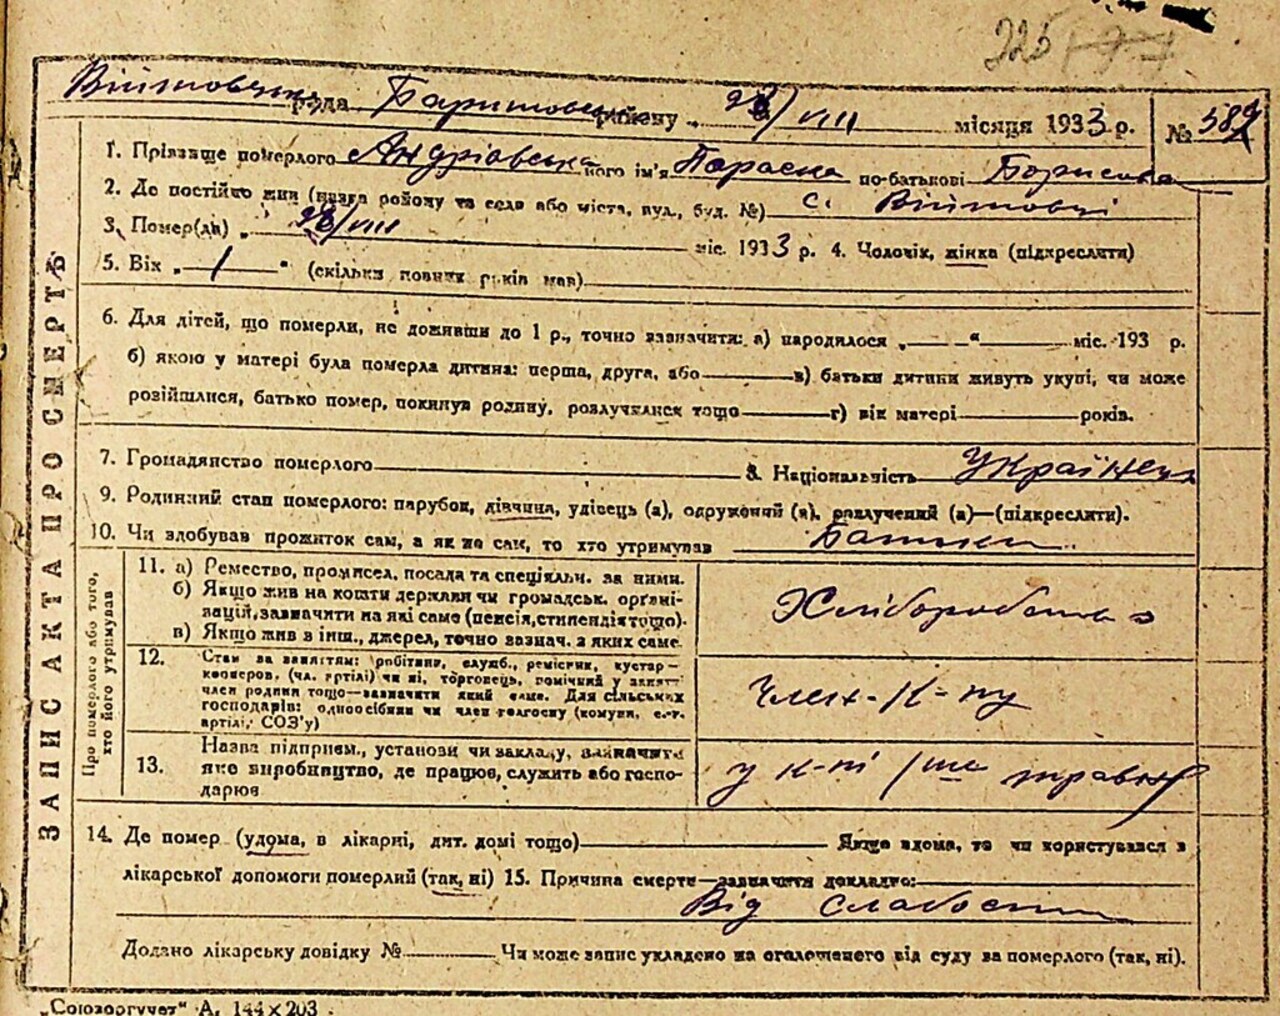 225
Війтовецька рада Баришовського району „ 28/VIII місяця 1933 р. № 589
ЗАПИС АКТА ПРО СМЕРТЬ
1. Прізвище померлого Андрієвська його ім'я Параска по-батькові Борисівна
2. Де постійно жив (назва району та села або міста, вул., буд. №) с. Війтовці
3. Помер(ла) „ 28/VIII міс. 1933 р. 4. Чоловік, жінка (підкреслити)
5. Вік „ 1 “ (скільки повних років мав)
6. Для дітей, що померли, не доживши до 1 р., точно зазначити: а) народилося „ “ міс. 193 р.
б) якою у матері була померла дитина: перша, друга, або в) батьки дитини живуть укупі, чи може
розійшлися, батько помер, покинув родину, розлучилися тощо г) вік матері років.
7. Громадянство померлого 8. Національність Українка
9. Родинний стан померлого: парубок, дівчина, удівець (а), одружений (а), розлучений (а)—(підкреслити).
10. Чи здобував прожиток сам, а як не сам, то хто утримував Батьки
Про померлого або того, хто його утримував
11. а) Ремество, промисел, посада та спеціяльн. за ними.
б) Якщо жив на кошти держави чи громадськ. орґані-
зацій, зазначити на які саме (пенсія, стипендія тощо).
в) Якщо жив в інш., джерел, точно вазнач. з яких саме.
Хліборобство
12. Стан за заняттям: робітник, служб., ремісник, кустар—
кооперов. (чл. артілі) чи ні, торговець, помічний у занят.
член родини тощо—зазначити який саме. Для сільських
господарів: одноосібник чи член колгоспу (комуни, с.-г.
артілі, СОЗ'у)
член К-пу
13. Назва підприєм., установи чи закладу, зазначити
яке виробництво, де працює, служить або госпо-
дарює
у к-пі 1ше травня
14. Де помер (удома, в лікарні, дит. домі тощо) Якщо вдома, то чи користувався з
лікарської допомоги померлий (так, ні) 15. Причина смерти—зазначити докладно:
Від слабости
Додано лікарську довідку № Чи може запис укладено на оголошеного від суду за померлого (так, ні).
„Союзоргучет“ А, 144×203